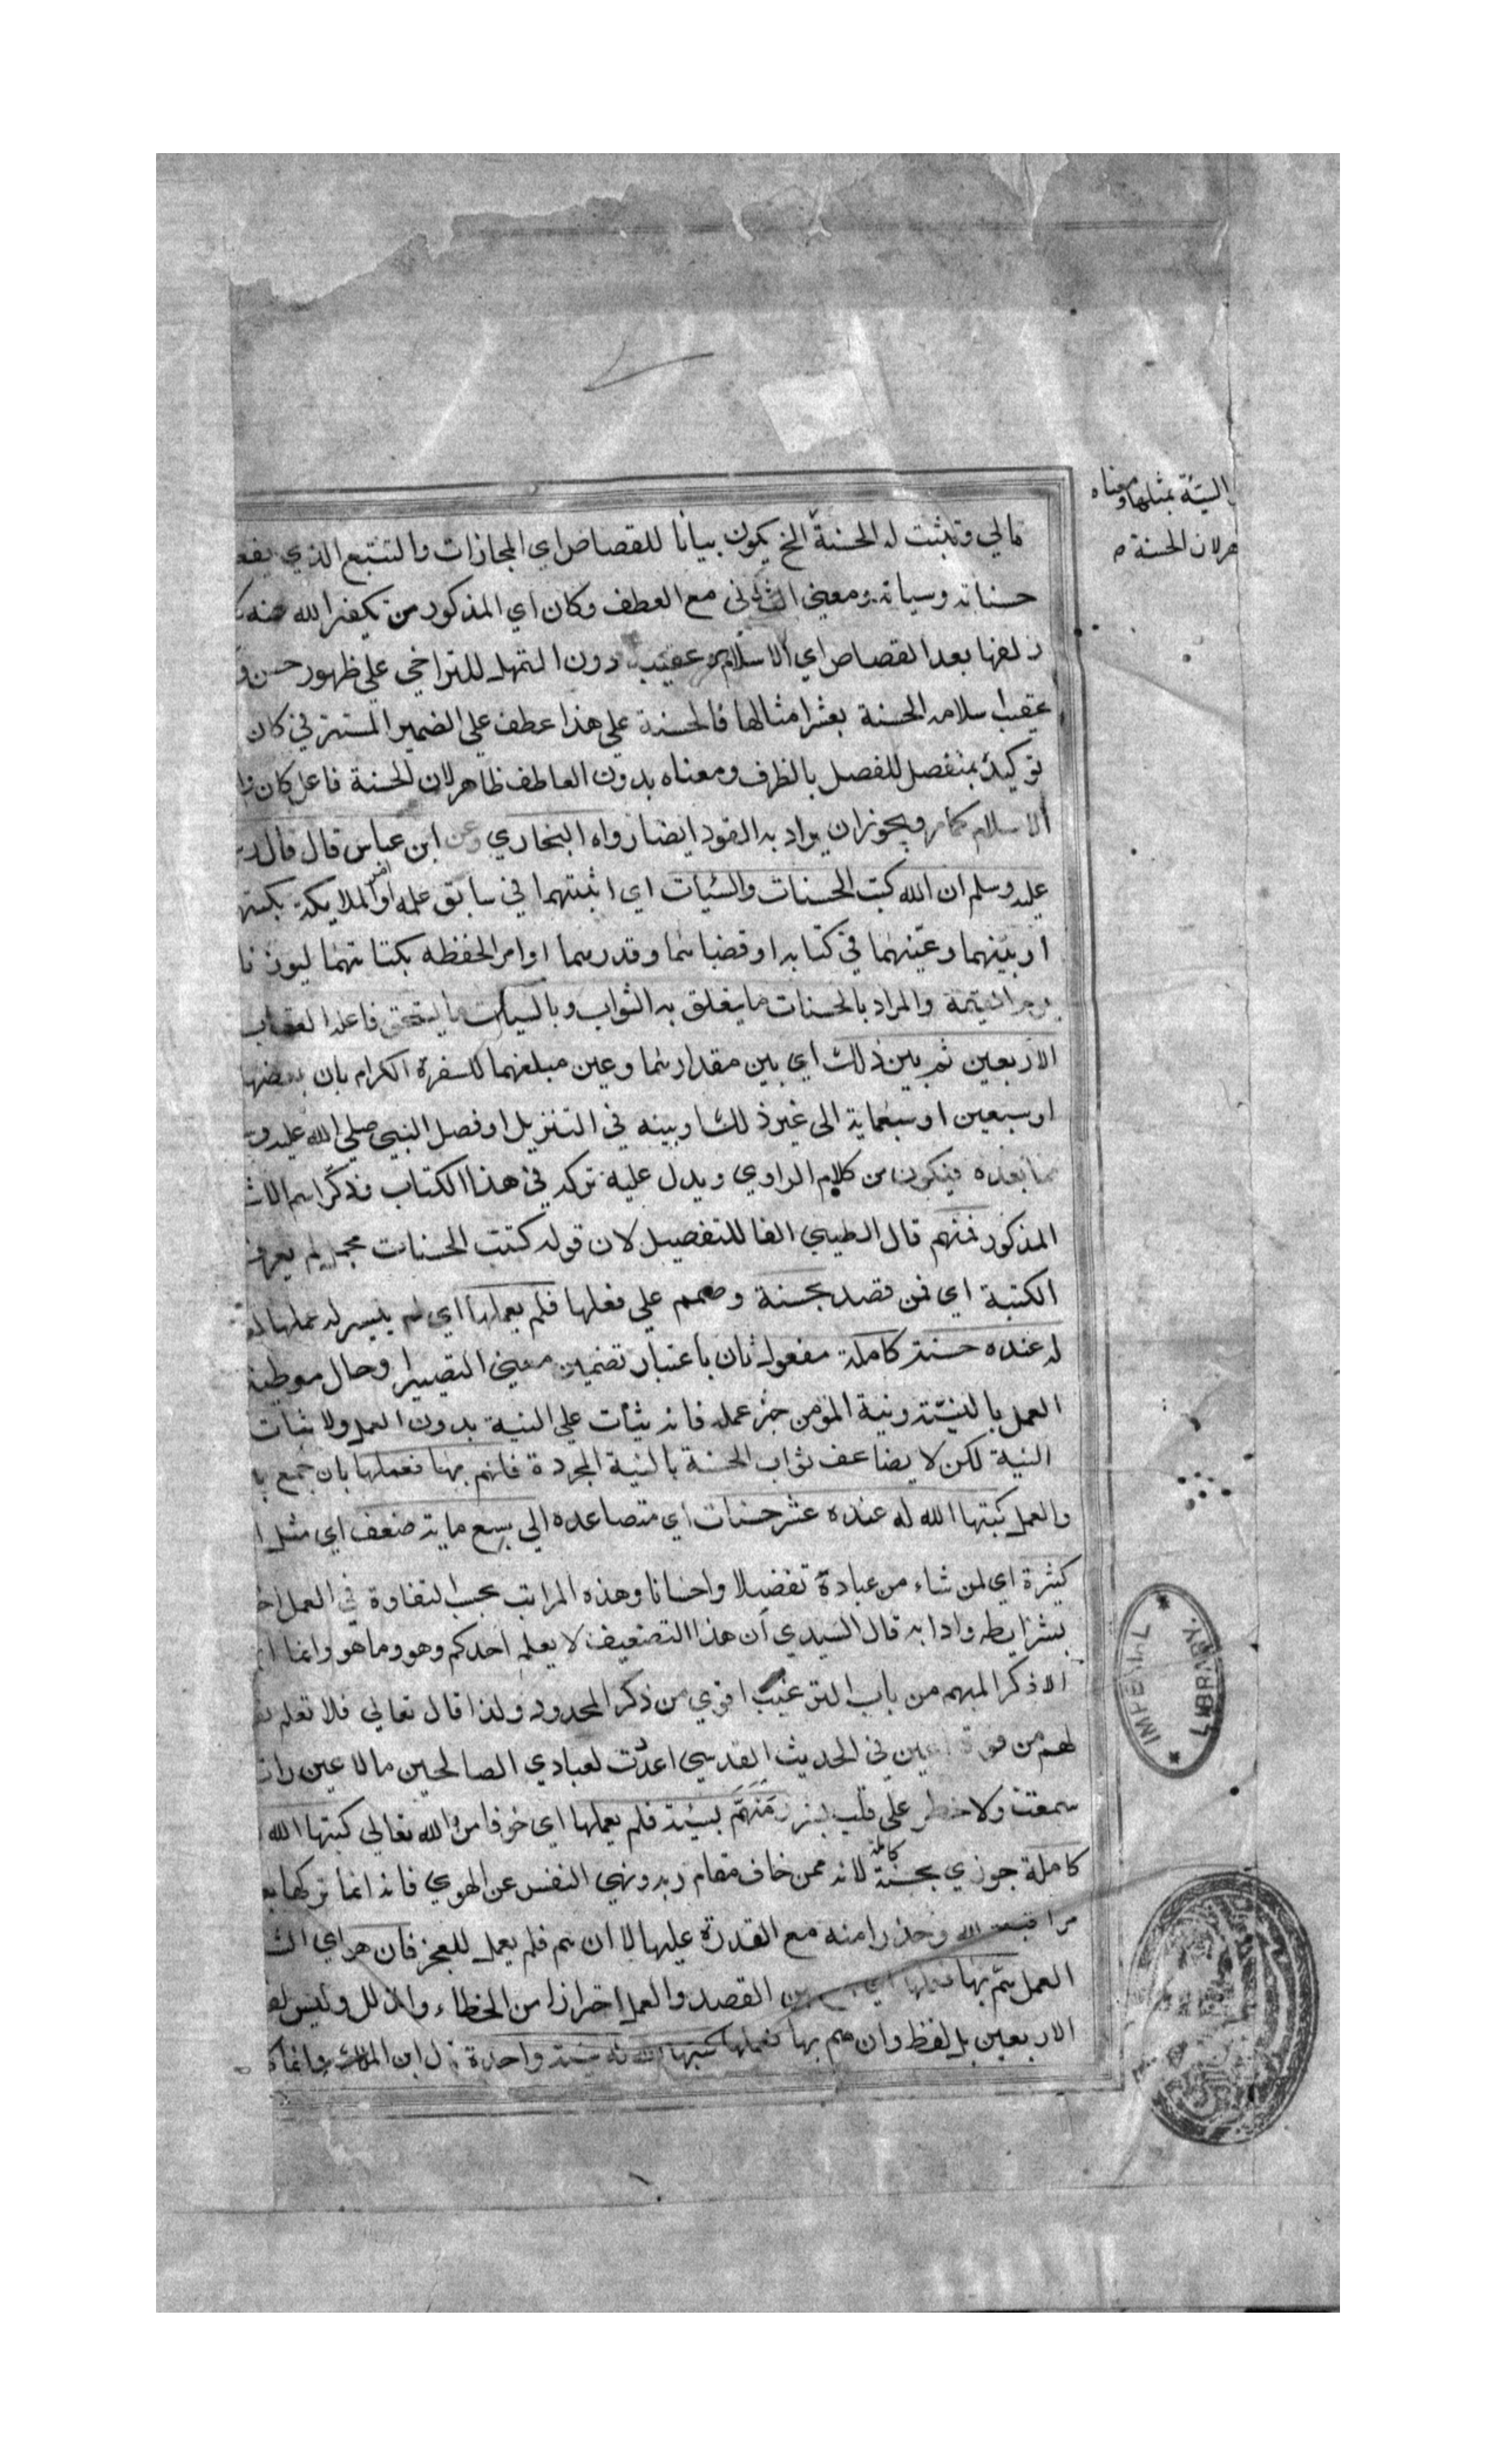 السيئة بمثلها ومعناه
هر لان الحسنة م
مالي وتثبت له الحسنة الخ يكون بيانا للقصاص اي المجازات والتتبع الذي يفع
حسناته وسياته ومعنى الثاني مع العطف وكان اي المذكور من تكفير الله عنه
زلفها بعد القصاص اي الاسلام عقيب دون التمهل للتراخي على ظهور حسن
عقيب اسلامه الحسنة بعشر امثالها فالحسنة على هذا عطف على الضمير المستتر في كان
توكيد بمنفصل للفصل بالظرف ومعناه بدون العاطف ظاهر لان الحسنة فاعل كان
الاسلام كما مر ويجوز ان يراد به القود ايضا رواه البخاري وعن ابن عباس قال قال
عليه وسلم ان الله كتب الحسنات والسيأت اي اثبتهما في سابق علمه او امر الملايكة بكتبه
او بينهما وعينهما في كتابه او قضاهما وقدرهما او امر الحفظه بكتابتهما ليوزنا
يوم القيمة والمراد بالحسنات ما يتعلق به الثواب وبالسيات ما يستحق فاعله العقاب
الاربعين ثم بين ذلك اي بين مقدارهما وعين مبلغهما للسفرة الكرام بان بعضها
او سبعين او سبعماية الى غير ذلك او بينه في التنزيل او فصل النبي صلى الله عليه و
بما بعده فيكون من كلام الراوي ويدل عليه تركه في هذا الكتاب وذكر اسم
المذكور فمنهم قال الطيبي الفا للتفصيل لان قوله كتبت الحسنات مجمل لم يعرف
الكتبة اي فمن قصد بحسنة وصمم على فعلها فلم يعملها اي لم يتيسر له عملها
له عنده حسنة كاملة مفعول ثان باعتبار تضمين معنى التصيير او حال موطية
العمل بالنية ونية المؤمن خير عمله فانه يثأت على النية بدون العمل ولا يثأت
النية لكن لا يضاعف ثواب الحسنة بالنية المجردة فان هم بها فعملها بان جمع
والعمل كتبها الله له عنده عشر حسنات اي متصاعدة الى سبع ماية ضعف اي مثل
كثيرة اي لمن شاء من عبادة تفضلا واحسانا وهذه المراتب بحسب التفاوة في العمل
بشرايطه وادابه قال السيدي ان هذا التضعيف لا يعلم احدكم وهو وما هو وانما
الا ذكر المبهم من باب الترغيب اقوي من ذكر المحدود ولذا قال تعالي فلا تعلم
لهم من قرة اعين في الحديث القدسي اعدت لعبادي الصالحين ما لا عين رات
سمعت ولا خطر على قلب بشر فمن هم بسيئة فلم يعملها اي خوفا من الله تعالي كتبها الله
كاملة جوزي بحسنة كاملة لانه ممن خاف مقام ربه ونهي النفس عن الهوي فانه انما تركها
مراقبة الله وحذرا منه مع القدرة عليها لا ان هم فلم يعمل للعجز فان هو اي
العمل هم بها فعملها اي بين القصد والعمل احترازا من الخطاء والزلل وليس
الاربعين بلفظ وان هم بها فعملها كتبها الله له سيئة واحدة قال ابن الملك وانما
IMPERIAL LIBRARY